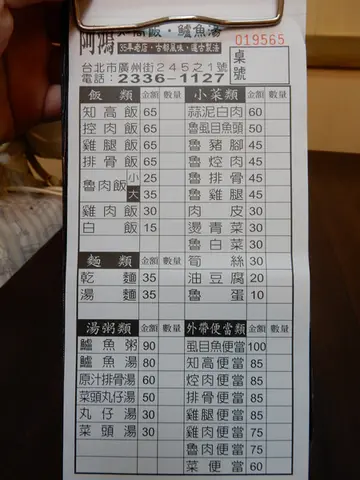 阿鴻知高飯．鱸魚湯
35年老店．古都風味．遵古製法
019565
桌號
台北市廣州街245之1號
電話：2336-1127
飯類 金額 數量
知高飯 65
控肉飯 65
雞腿飯 65
排骨飯 65
魯肉飯 小 25
大 35
雞肉飯 30
白飯 15
麵類 金額 數量
乾麵 35
湯麵 35
湯粥類 金額 數量
鱸魚粥 90
鱸魚湯 80
原汁排骨湯 60
菜頭丸仔湯 50
丸仔湯 30
菜頭湯 30
小菜類 金額 數量
蒜泥白肉 60
魯虱目魚頭 50
魯豬腳 45
魯焢肉 45
魯排骨 45
魯雞腿 45
肉皮 30
燙青菜 30
魯白菜 30
筍絲 30
油豆腐 20
魯蛋 10
外帶便當類 金額 數量
虱目魚便當 100
知高便當 85
焢肉便當 85
排骨便當 85
雞腿便當 85
雞肉便當 75
魯肉便當 75
菜便當 60